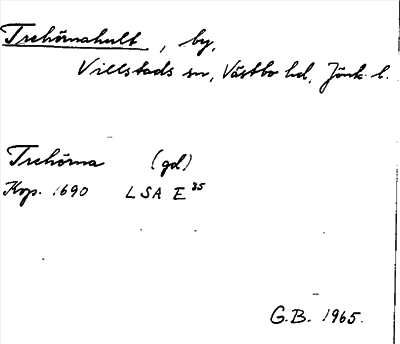 Trehörnahult, by,
Villstads sn, Västbo hd, Jönk. l.
Trehörna (gd)
Kop. 1690 LSA E 35
G.B. 1965.